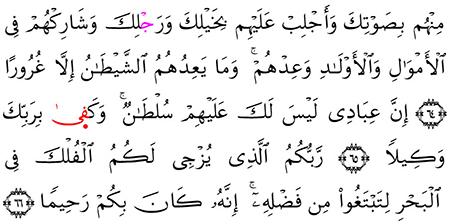 مِنْهُم بِصَوْتِكَ وَأَجْلِبْ عَلَيْهِم بِخَيْلِكَ وَرَجْلِكَ وَشَارِكْهُمْ فِى
ٱلْأَمْوَٰلِ وَٱلْأَوْلَـٰدِ وَعِدْهُمْ ۚ وَمَا يَعِدُهُمُ ٱلشَّيْطَـٰنُ إِلَّا غُرُورًا
﴿٦٤﴾ إِنَّ عِبَادِى لَيْسَ لَكَ عَلَيْهِمْ سُلْطَـٰنٌ ۚ وَكَفِىٰ بِرَبِّكَ
وَكِيلًا ﴿٦٥﴾ رَّبُّكُمُ ٱلَّذِى يُزْجِى لَكُمُ ٱلْفُلْكَ فِى
ٱلْبَحْرِ لِتَبْتَغُوا۟ مِن فَضْلِهِۦٓ ۚ إِنَّهُۥ كَانَ بِكُمْ رَحِيمًا ﴿٦٦﴾